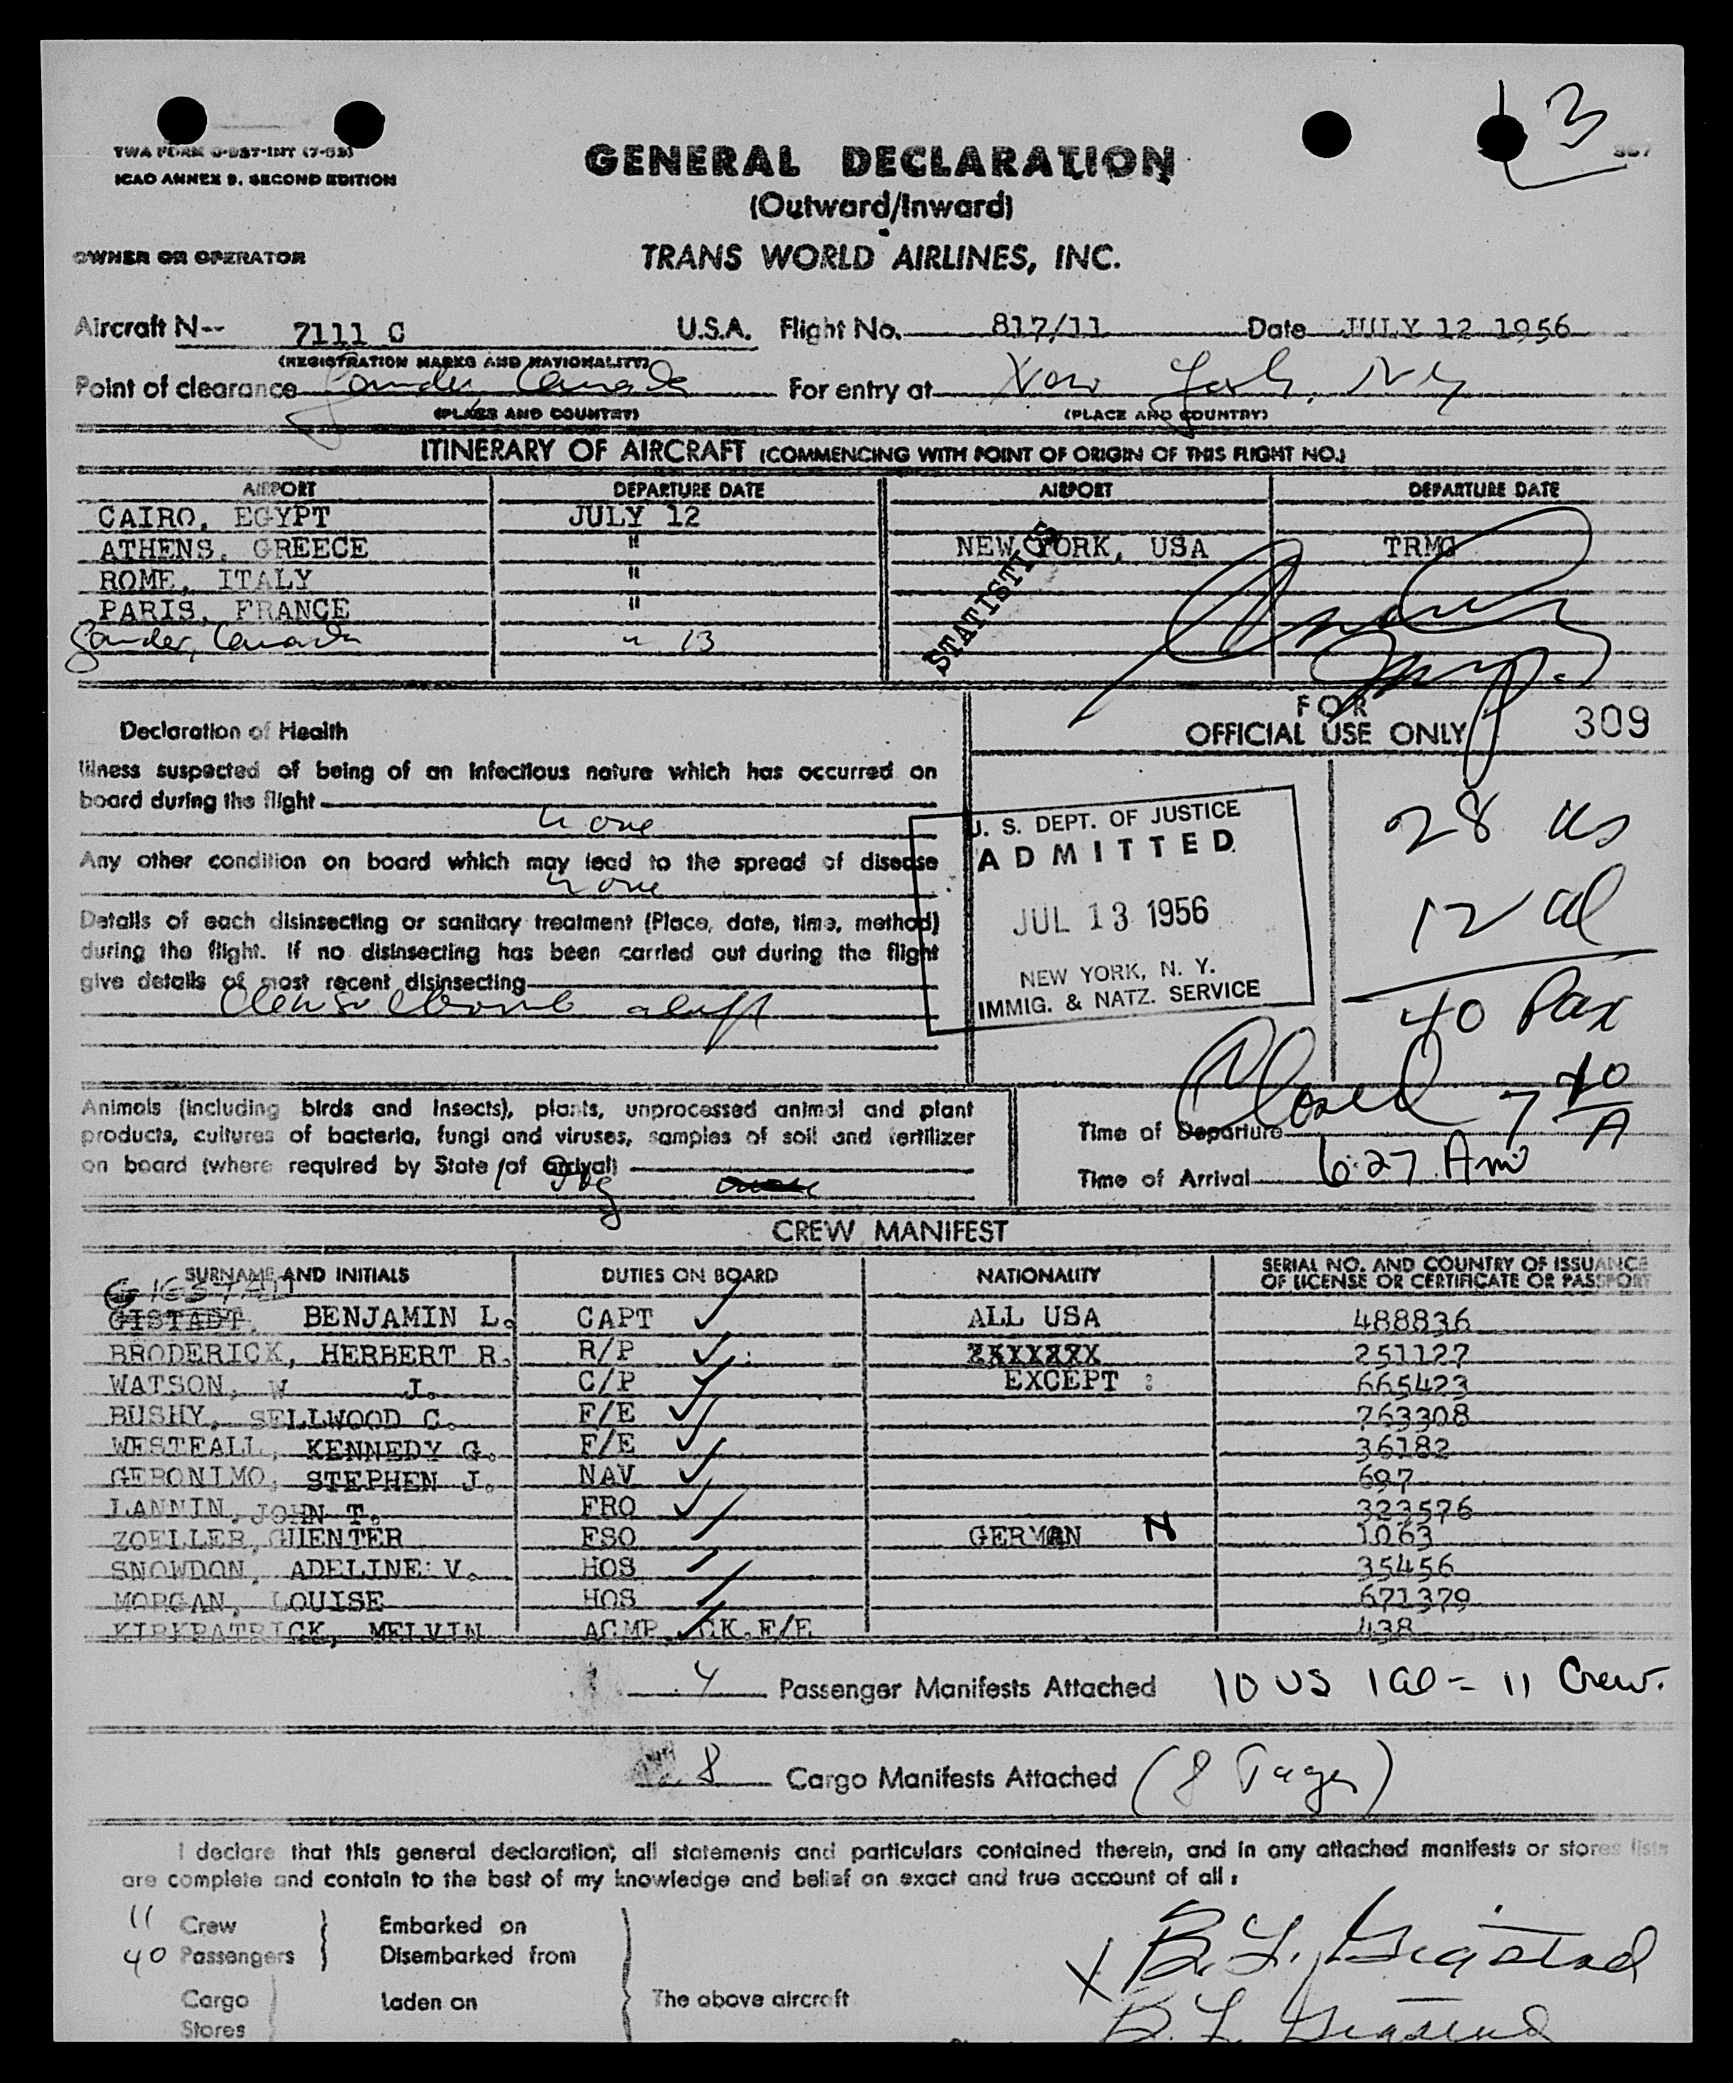 3
TWA FORM O-937-INT (7-53)
ICAO ANNEX 9, SECOND EDITION
GENERAL DECLARATION
(Outward/Inward)
OWNER OR OPERATOR
TRANS WORLD AIRLINES, INC.
Aircraft N-- 7111 C U.S.A. Flight No. 817/11 Date JULY 12 1956
(REGISTRATION MARKS AND NATIONALITY)
Point of clearance Gander, Canada For entry at New York, NY
(PLACE AND COUNTRY) (PLACE AND COUNTRY)
ITINERARY OF AIRCRAFT (COMMENCING WITH POINT OF ORIGIN OF THIS FLIGHT NO.)
AIRPORT DEPARTURE DATE AIRPORT DEPARTURE DATE
CAIRO, EGYPT JULY 12
ATHENS, GREECE " NEW YORK, USA TRMG
ROME, ITALY "
PARIS, FRANCE "
Gander, Canada " 13
STATISTICS
FOR
OFFICIAL USE ONLY 309
Declaration of Health
Illness suspected of being of an infectious nature which has occurred on
board during the flight
none
Any other condition on board which may lead to the spread of disease
none
Details of each disinsecting or sanitary treatment (Place, date, time, method)
during the flight. If no disinsecting has been carried out during the flight
give details of most recent disinsecting
U. S. DEPT. OF JUSTICE
ADMITTED
JUL 13 1956
NEW YORK, N. Y.
IMMIG. & NATZ. SERVICE
28 US
12 al
40 Pax
Closed 7 40/A
Animals (including birds and insects), plants, unprocessed animal and plant
products, cultures of bacteria, fungi and viruses, samples of soil and fertilizer
on board (where required by State of arrival)
1 Dog
Time of Departure
Time of Arrival 6:27 Am
CREW MANIFEST
SURNAME AND INITIALS DUTIES ON BOARD NATIONALITY SERIAL NO. AND COUNTRY OF ISSUANCE
OF LICENSE OR CERTIFICATE OR PASSPORT
GIGSTAD
GISTADT, BENJAMIN L. CAPT ALL USA 488836
BRODERICK, HERBERT R. R/P XXXXXXX 251127
WATSON, W J. C/P EXCEPT : 665423
BUSHY, SELLWOOD C. F/E 763308
WESTFALL, KENNEDY G. F/E 36182
GERONIMO, STEPHEN J. NAV 697
LANNIN, JOHN T. FRO 323576
ZOELLER, GUENTER FSO GERMAN N 1063
SNOWDON, ADELINE V. HOS 35456
MORGAN, LOUISE HOS 671379
KIRKPATRICK, MELVIN ACMP. CK.F/E 438
4 Passenger Manifests Attached 10 US 1 al = 11 Crew.
8 Cargo Manifests Attached (8 Pages)
I declare that this general declaration, all statements and particulars contained therein, and in any attached manifests or stores lists
are complete and contain to the best of my knowledge and belief an exact and true account of all:
11 Crew Embarked on
40 Passengers Disembarked from
X B. L. Gigstad
Cargo Laden on The above aircraft
Stores
B. L. Gigstad